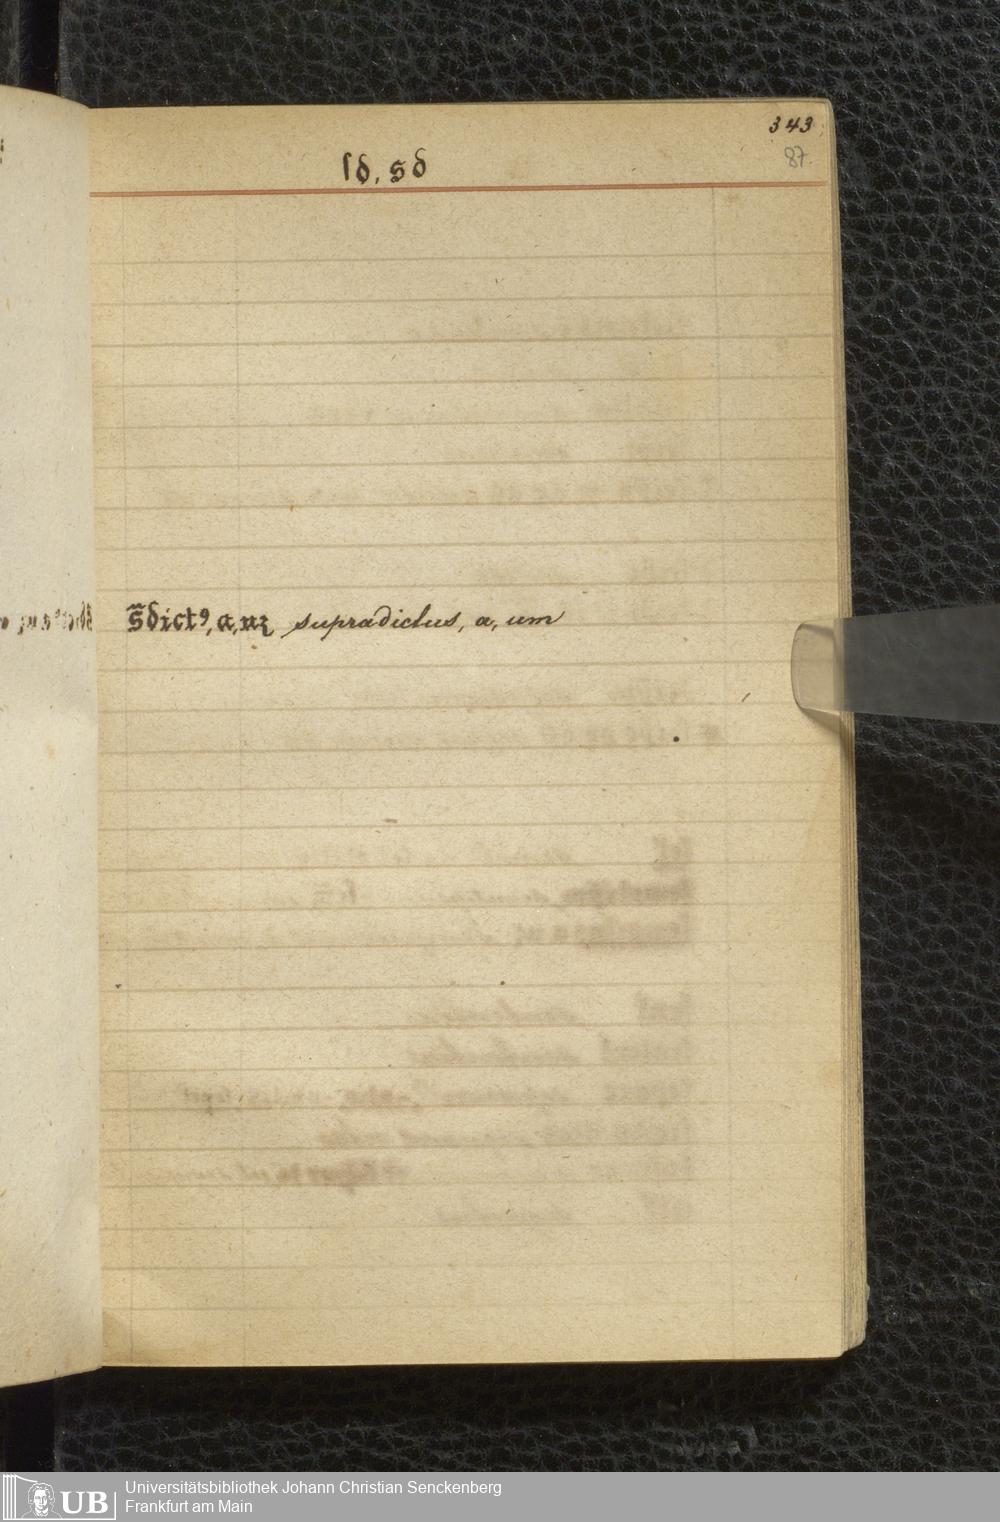 343
87.
ſd. sd
s̃dictꝯ, a, uꝫ supradictus, a, um
Universitätsbibliothek Johann Christian Senckenberg
Frankfurt am Main
UB